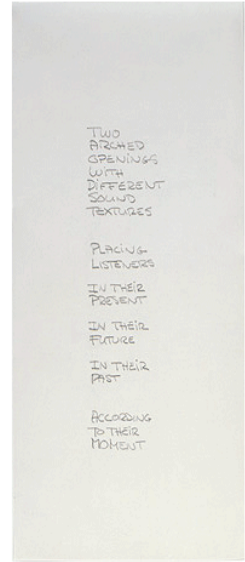 TWO
ARCHED
OPENINGS
WITH
DIFFERENT
SOUND
TEXTURES
PLACING
LISTENERS
IN THEIR
PRESENT
IN THEIR
FUTURE
IN THEIR
PAST
ACCORDING
TO THEIR
MOMENT